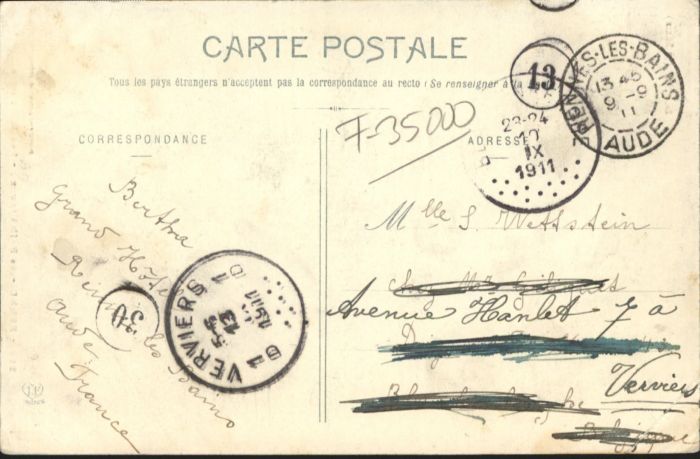 CARTE POSTALE
Tous les pays étrangers n'acceptent pas la correspondance au recto (Se renseigner à la
CORRESPONDANCE
ADRESSE
F-35000
13
RENNES-LES-BAINS
13 45
9 -9
11
AUDE
23-24
10
IX
1911
Bertha
Grand Hôtel
Rennes les Bains
Aude.
France
30
VERVIERS
5-S
13
1911
B1 B1
Mlle S. Wettstein
Avenue Hanlet 7 à
Verviers